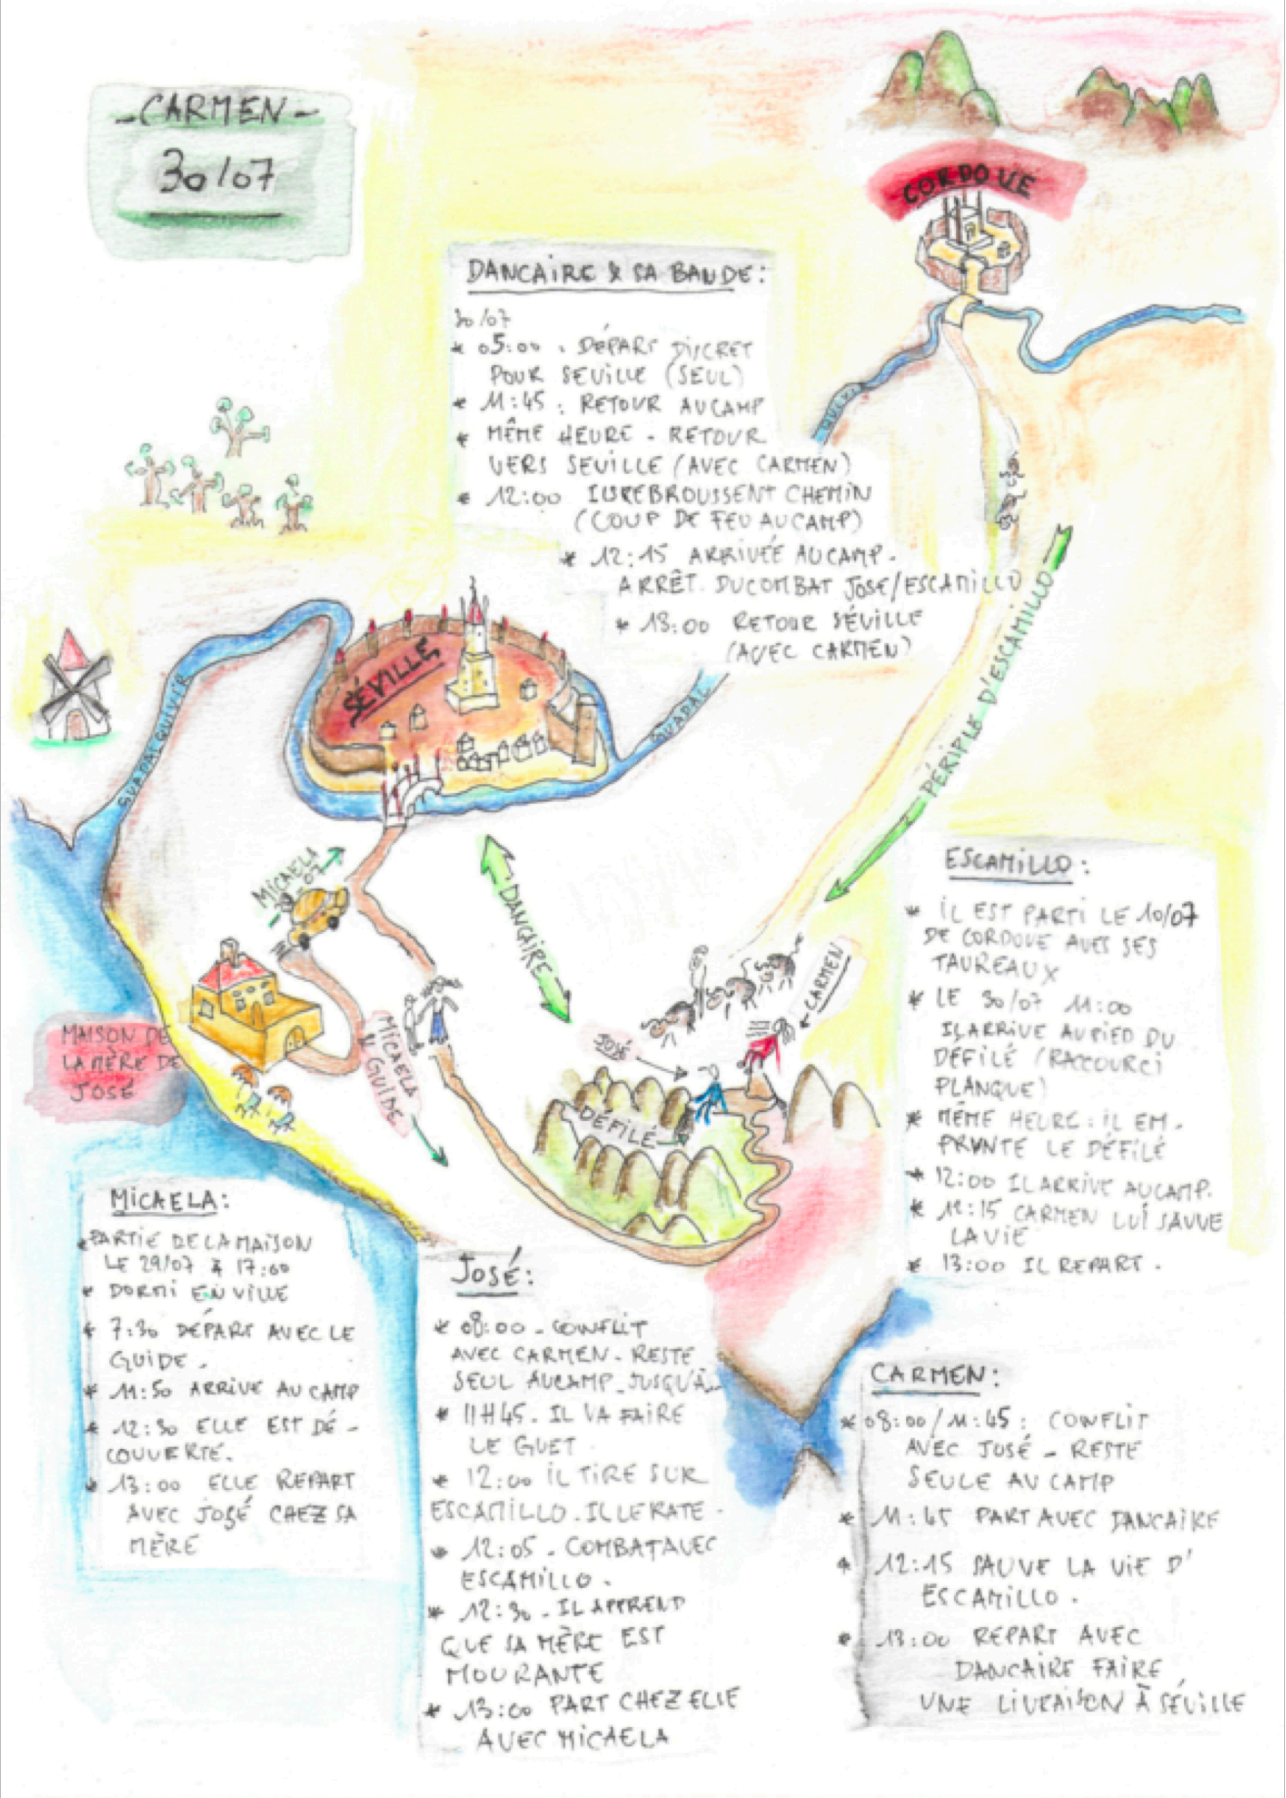 -CARMEN-
30/07
CORDOUE
DANCAIRE & SA BANDE:
30/07
* 05:00. DÉPART DISCRET
POUR SEVILLE (SEUL)
* 11:45: RETOUR AU CAMP
* MÊME HEURE - RETOUR
VERS SEVILLE (AVEC CARMEN)
* 12:00 ILS REBROUSSENT CHEMIN
(COUP DE FEU AU CAMP)
* 12:15 ARRIVÉE AU CAMP.
ARRÊT DU COMBAT JOSE/ESCAMILLO
* 13:00 RETOUR SÉVILLE
(AVEC CARMEN)
QUIVI
PÉRIPLE D'ESCAMILLO
SÉVILLE
GUADALQUIVIR
GUADAL
MICAELA
29-07
DANCAIRE
ESCAMILLO:
* IL EST PARTI LE 10/07
DE CORDOUE AVEC SES
TAUREAUX
* LE 30/07 11:00
IL ARRIVE AU PIED DU
DÉFILÉ (RACCOURCI
PLANQUE)
* MÊME HEURE: IL EM-
PRUNTE LE DÉFILÉ
* 12:00 IL ARRIVE AU CAMP.
* 12:15 CARMEN LUI SAUVE
LA VIE
* 13:00 IL REPART.
CARMEN
JOSÉ
MAISON DE
LA MÈRE DE
JOSÉ
MICAELA
& GUIDE
DÉFILÉ
MICAELA:
* PARTIE DE LA MAISON
LE 29/07 à 17:00
* DORMI EN VILLE
* 7:30 DÉPART AVEC LE
GUIDE.
* 11:50 ARRIVE AU CAMP
* 12:30 ELLE EST DÉ-
COUVERTE.
* 13:00 ELLE REPART
AVEC JOSÉ CHEZ SA
MÈRE
JOSÉ:
* 08:00 - CONFLIT
AVEC CARMEN - RESTE
SEUL AU CAMP JUSQU'À..
* 11H45. IL VA FAIRE
LE GUET
* 12:00 IL TIRE SUR
ESCAMILLO. IL LE RATE.
* 12:05 - COMBAT AVEC
ESCAMILLO.
* 12:30 - IL APPREND
QUE SA MÈRE EST
MOURANTE
* 13:00 PART CHEZ ELLE
AVEC MICAELA
CARMEN:
* 08:00/11:45: CONFLIT
AVEC JOSÉ - RESTE
SEULE AU CAMP
* 11:45 PART AVEC DANCAIRE
* 12:15 SAUVE LA VIE D'
ESCAMILLO.
* 13:00 REPART AVEC
DANCAIRE FAIRE
UNE LIVRAISON À SÉVILLE